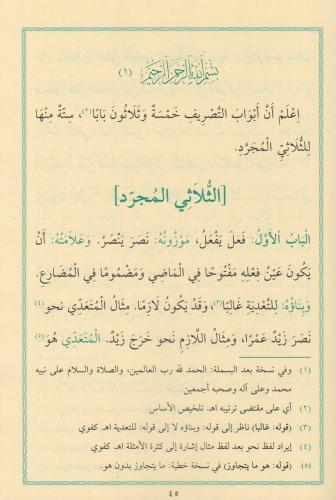 بِسْمِ اللَّهِ الرَّحْمَنِ الرَّحِيمِ (١)
اِعْلَمْ أَنَّ أَبْوَابَ التَّصْرِيفِ خَمْسَةٌ وَثَلَاثُونَ بَابًا(٢)، سِتَّةٌ مِنْهَا
لِلثُّلَاثِيِّ الْمُجَرَّدِ.
[الثُّلَاثِي المُجرَّد]
الْبَابُ الْأَوَّلُ: فَعَلَ يَفْعُلُ، مَوْزُونُهُ: نَصَرَ يَنْصُرُ. وَعَلَامَتُهُ: أَنْ
يَكُونَ عَيْنُ فِعْلِهِ مَفْتُوحًا فِي الْمَاضِي وَمَضْمُومًا فِي الْمُضَارِعِ.
وَبِنَاؤُهُ: لِلتَّعْدِيَةِ غَالِبًا(٣)، وَقَدْ يَكُونُ لَازِمًا. مِثَالُ الْمُتَعَدِّي نحو(٤)
نَصَرَ زَيْدٌ عَمْرًا، وَمِثَالُ اللَّازِمِ نَحو خَرَجَ زَيْدٌ. الْمُتَعَدِّي هُوَ(٥)
(١) وفي نسخة بعد البسملة: الحمد لله رب العالمين، والصلاة والسلام على نبيه
محمد وعلى آله وصحبه أجمعين.
(٢) أي على مقتضى ترتيبه اهـ. تلخيص الأساس
(٣) (قوله: غالبا) ناظر إلى قوله: وبناؤه لا إلى قوله: للتعدية اهـ كفوي
(٤) إيراد لفظ نحو بعد لفظ مثال إشارة إلى كثرة الأمثلة اهـ كفوي
(٥) (قوله: هو ما يتجاوز) في نسخة خطية: ما يتجاوز بدون هو.
٤٥